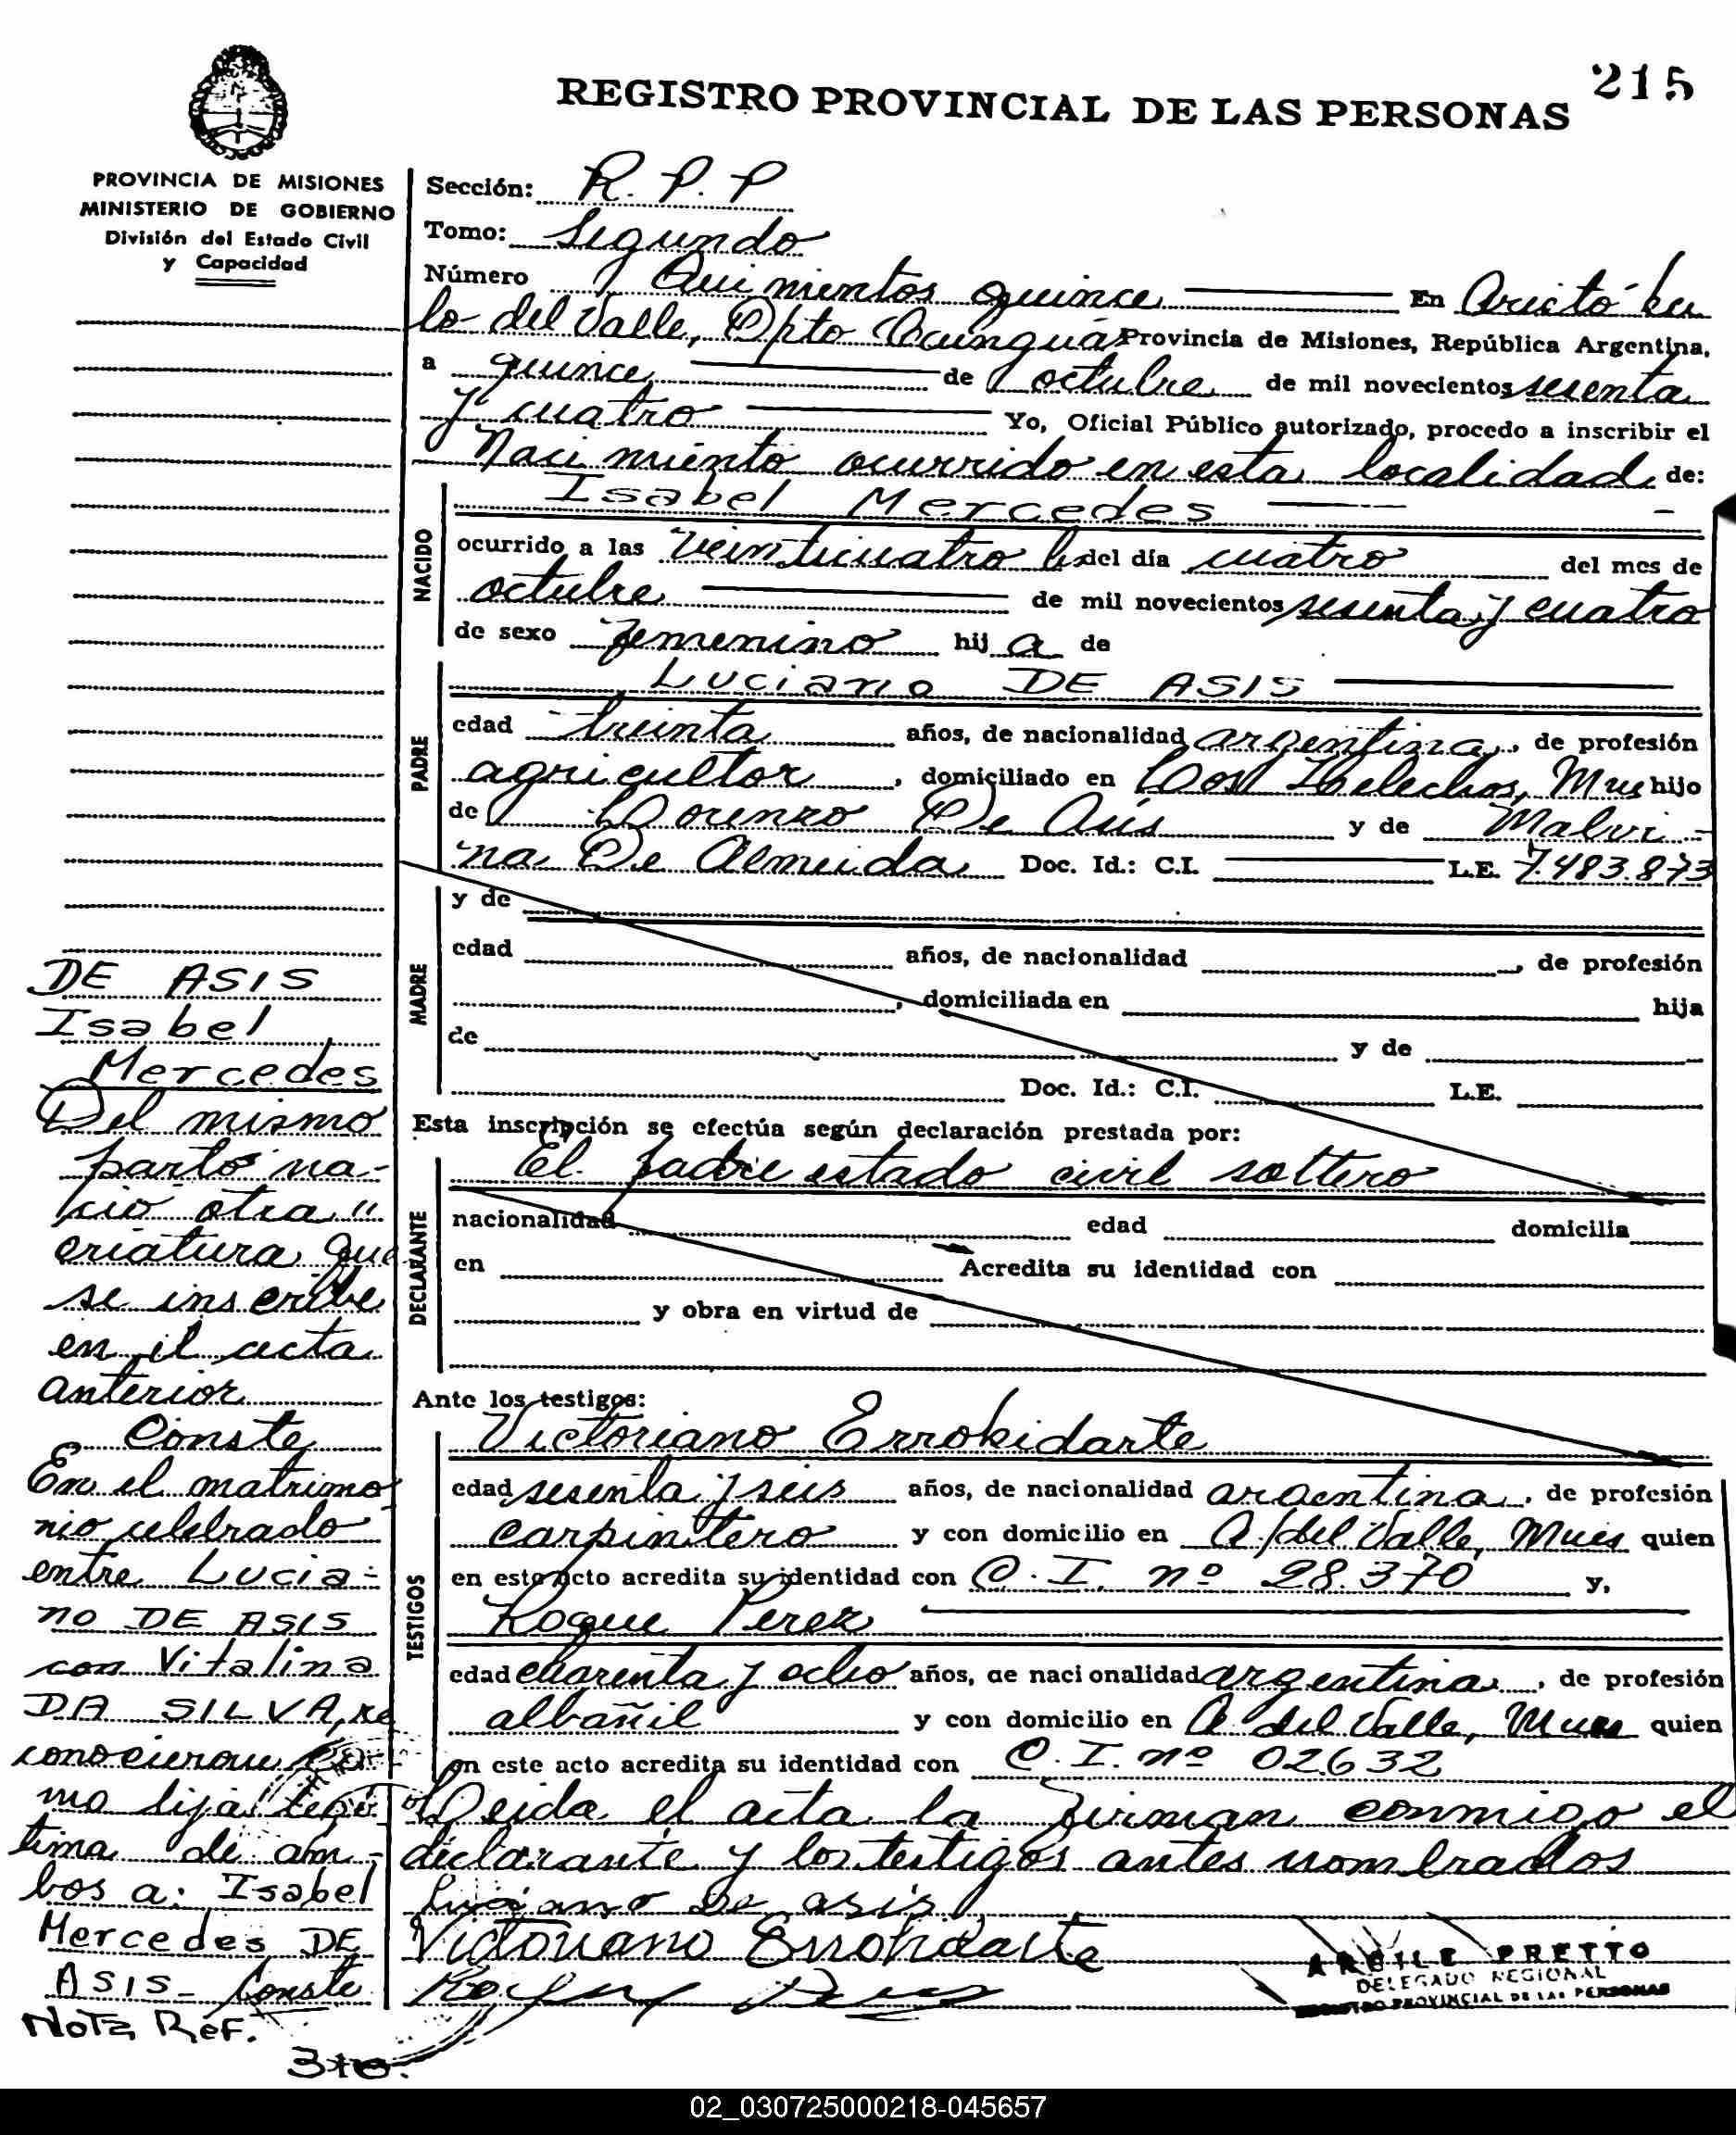 215
REGISTRO PROVINCIAL DE LAS PERSONAS
PROVINCIA DE MISIONES
MINISTERIO DE GOBIERNO
División del Estado Civil
y Capacidad
Sección: R. P. P
Tomo: Segundo
Número Quinientos quince En Aristóbu
lo del Valle, Dpto Cainguás Provincia de Misiones, República Argentina,
a quince de octubre de mil novecientos sesenta
y cuatro Yo, Oficial Público autorizado, procedo a inscribir el
Nacimiento ocurrido en esta localidad de:
NACIDO
Isabel Mercedes
ocurrido a las veinticuatro hs del día cuatro del mes de
octubre de mil novecientos sesenta y cuatro
de sexo femenino hija de
PADRE
Luciano DE ASIS
edad treinta años, de nacionalidad argentina, de profesión
agricultor, domiciliado en Los Helechos, Mnes hijo
de Lorenzo De Asís y de Malvi-
na De Almeida Doc. Id.: C.I. L.E. 7.483.873
MADRE
y de
edad años, de nacionalidad , de profesión
, domiciliada en hija
de y de
Doc. Id.: C.I. L.E.
Esta inscripción se efectúa según declaración prestada por:
DECLARANTE
El padre estado civil soltero
nacionalidad edad domicilia
en Acredita su identidad con
y obra en virtud de
Ante los testigos:
TESTIGOS
Victoriano Errokidarte
edad sesenta y seis años, de nacionalidad argentina, de profesión
carpintero y con domicilio en A. del Valle, Mnes quien
en este acto acredita su identidad con C. I. nº 28.370 y,
Roque Perez
edad cuarenta y ocho años, de nacionalidad argentina, de profesión
albañil y con domicilio en A. del Valle, Mnes quien
en este acto acredita su identidad con C. I. nº 02632
Leida el acta la firman conmigo el
declarante y los testigos antes nombrados
Luciano De asis
Victoriano Errokidarte
ARGILE PRETTO
DELEGADO REGIONAL
REGISTRO PROVINCIAL DE LAS PERSONAS
DE ASIS
Isabel
Mercedes
Del mismo
parto na-
ció otra
criatura que
se inscribe
en el acta
anterior
Conste
En el matrimo
nio celebrado
entre Lucia-
no DE ASIS
con Vitalina
DA SILVA, re
conocieron co-
mo hija legí-
tima de am-
bos a: Isabel
Mercedes DE
ASIS- Conste
Nota Ref.
02_030725000218-045657